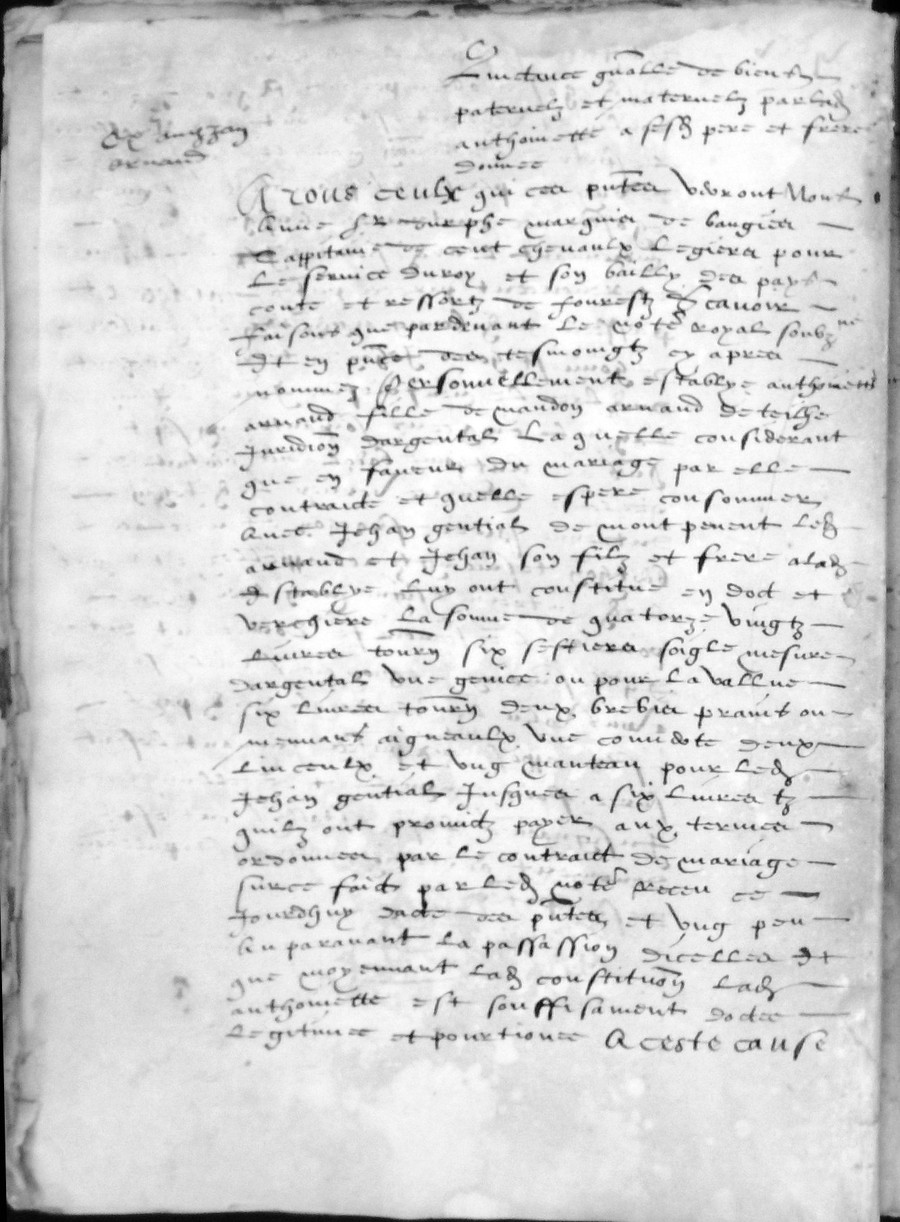 Quictance gñalle de biens
paternelz et maternelz par lad
anthoinette a sesd pere et frere
donnee
Exp
arnaud
A Tous ceulx qui ces pñtes verront Nous
Anne sr durphe marquis de baugies
Cappitaine de cent chevaulx legiers pour
Le service du roy et son bailly des pays
conte et ressortz de fourestz scavoir
faisons que pardevant le notẽ royal soubzne
Et en pñce des tesmoingtz cy apres
nommez personnellement establye anthoinette
arnaud fille de mandon arnaud de teilhe
Juridion dargental Laquelle considerant
que en faveur du mariage par elle
contraicte et quelle espere consommer
Avec Jehan gential de montpenent led
arnaud et Jehan son filz et frere a lad
Establye luy ont constitue en doct et
verchiere La somme de quatorze vingtz
Livres tourn six sestiers soigle mesure
dargental une genice ou pour la vallue
six livres tourn deux brebis prains ou
mennant aigneaulx une couverte deux
Linceulx et ung manteau pour led
Jehan gential Jusques a six livres tz
quilz ont promictz payer aux termes
ordonnes par le contraict de mariage
surce faict par led notẽ receu ce
Jourdhuy dacte des pñtes et ung peu
Au paravant la passassion dicelles Et
que moyennant lad constitution lad
anthoinette est souffisament doctee
Legitimee et pourtionee A ceste cause